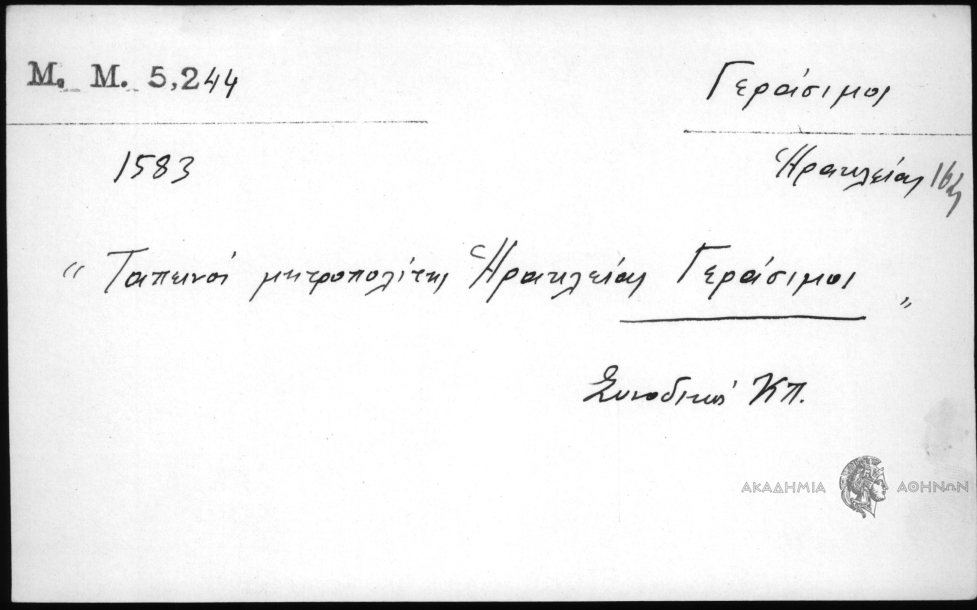 Μ. Μ. 5,244
Γεράσιμος
1583
Ἡρακλείας
“ Ταπεινὸς μητροπολίτης Ἡρακλείας Γεράσιμος „
Συνοδικῶς ΚΠ.
ΑΚΑΔΗΜΙΑ ΑΘΗΝΩΝ